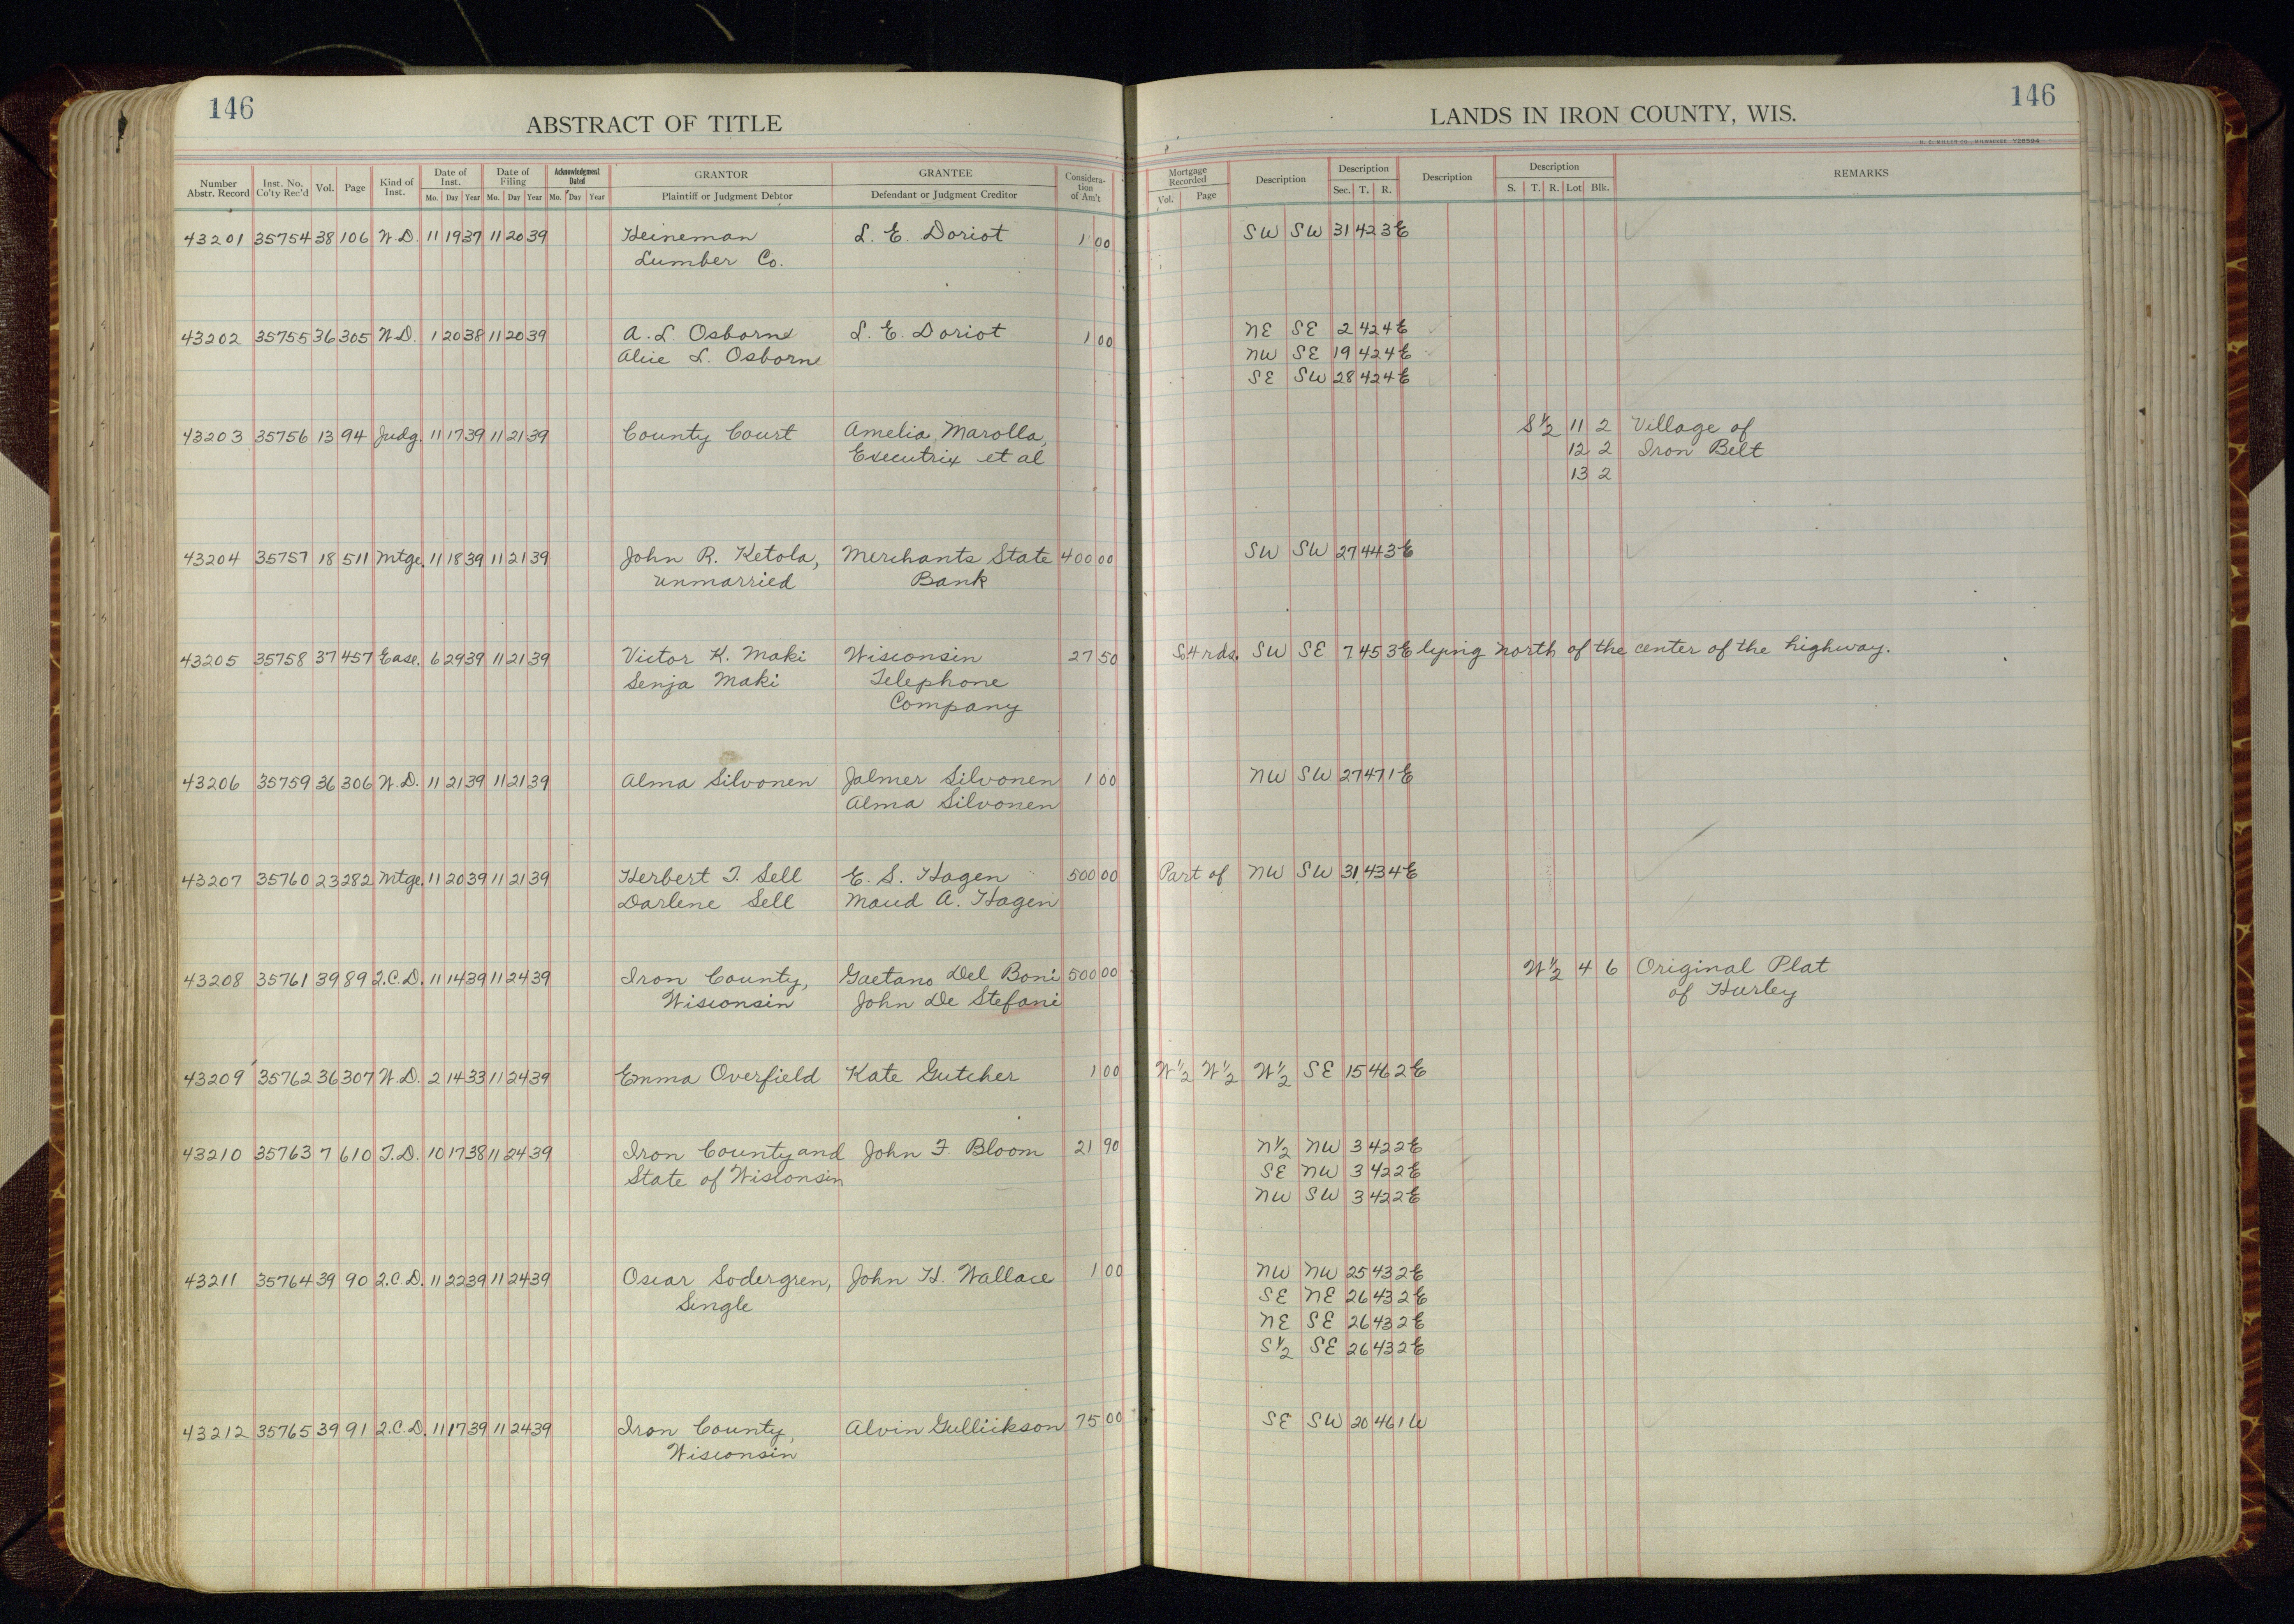 146
ABSTRACT OF TITLE
LANDS IN IRON COUNTY, WIS.
146
H. C. MILLER CO., MILWAUKEE V28594
Number Abstr. Record | Inst. No. Co'ty Rec'd | Vol. | Page | Kind of Inst. | Date of Inst. Mo. Day Year | Date of Filing Mo. Day Year | Acknowledgment Dated Mo. Day Year | GRANTOR Plaintiff or Judgment Debtor | GRANTEE Defendant or Judgment Creditor | Considera- tion of Am't | Mortgage Recorded Vol. Page | Description | Description Sec. T. R. | Description | Description S. T. R. Lot Blk. | REMARKS
43201 35754 38 106 W.D. 11 19 37 11 20 39 Heineman L. E. Doriot 1 00 SW SW 31 42 3E
Lumber Co.
43202 35755 36 305 W.D. 1 20 38 11 20 39 A. L. Osborne L. E. Doriot 1 00 NE SE 2 42 4E
Alice L. Osborne NW SE 19 42 4E
SE SW 28 42 4E
43203 35756 13 94 Judg. 11 17 39 11 21 39 County Court Amelia Marolla, S½ 11 2 Village of
Executrix et al 12 2 Iron Belt
13 2
43204 35757 18 511 Mtge. 11 18 39 11 21 39 John R. Ketola, Merchants State 400 00 SW SW 27 44 3E
unmarried Bank
43205 35758 37 457 Ease. 6 29 39 11 21 39 Victor K. Maki Wisconsin 27 50 S.4 rds. SW SE 7 45 3E lying north of the center of the highway.
Senja Maki Telephone
Company
43206 35759 36 306 W.D. 11 21 39 11 21 39 Alma Silvonen Jalmer Silvonen 1 00 NW SW 27 47 1E
Alma Silvonen
43207 35760 23 282 Mtge. 11 20 39 11 21 39 Herbert T. Sell E. S. Hagen 500 00 Part of NW SW 31 43 4E
Darlene Sell Maud A. Hagen
43208 35761 39 89 2.C.D. 11 14 39 11 24 39 Iron County, Gaetano Del Boni 500 00 W½ 4 6 Original Plat
Wisconsin John De Stefani of Hurley
43209 35762 36 307 W.D. 2 14 33 11 24 39 Emma Overfield Kate Gutcher 1 00 W½ W½ W½ SE 15 46 2E
43210 35763 7 610 T.D. 10 17 38 11 24 39 Iron County and John F. Bloom 21 90 N½ NW 3 42 2E
State of Wisconsin SE NW 3 42 2E
NW SW 3 42 2E
43211 35764 39 90 2.C.D. 11 22 39 11 24 39 Oscar Sodergren, John H. Wallace 1 00 NW NW 25 43 2E
Single SE NE 26 43 2E
NE SE 26 43 2E
S½ SE 26 43 2E
43212 35765 39 91 2.C.D. 11 17 39 11 24 39 Iron County, Alvin Gullickson 75 00 SE SW 20 46 1W
Wisconsin